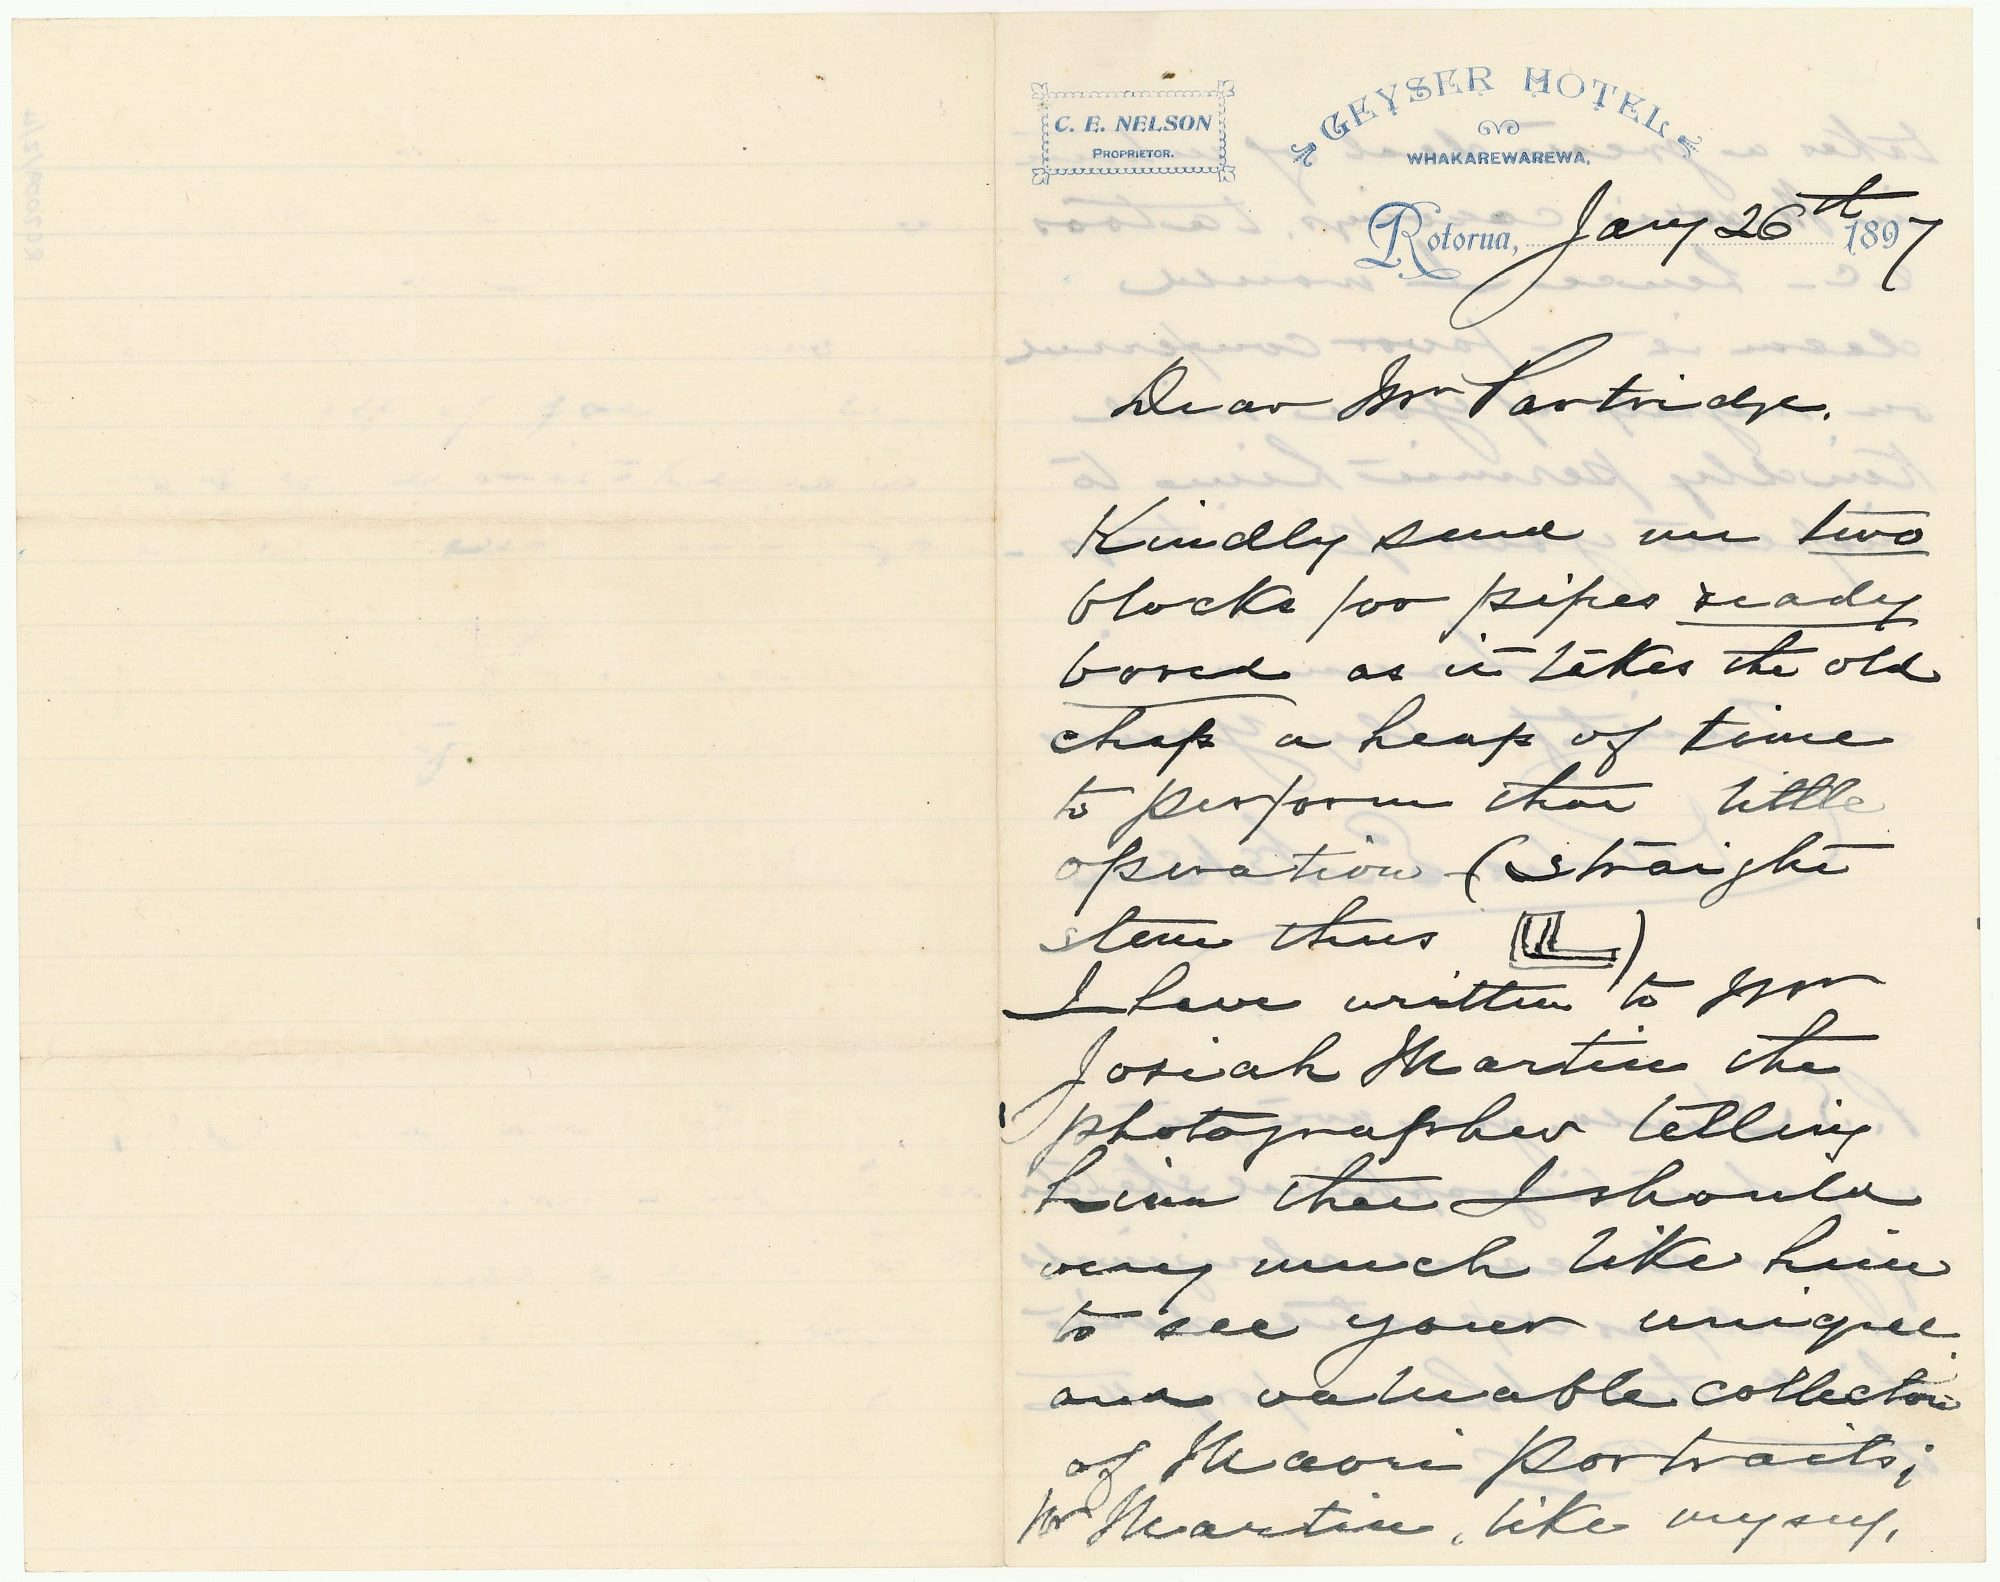 C. E. NELSON
PROPRIETOR.
GEYSER HOTEL
WHAKAREWAREWA.
Rotorua, Jany 26th 1897
Dear Mr Partridge.
Kindly send me two
blocks for pipes ready
bored as it takes the old
chap a heap of time
to perform that little
operation - (straight
stem thus )
I have written to Mr
Josiah Martin the
photographer telling
him that I should
very much like him
to see your unique
and valuable collection
of Maori portraits;
Mr Martin, like myself,